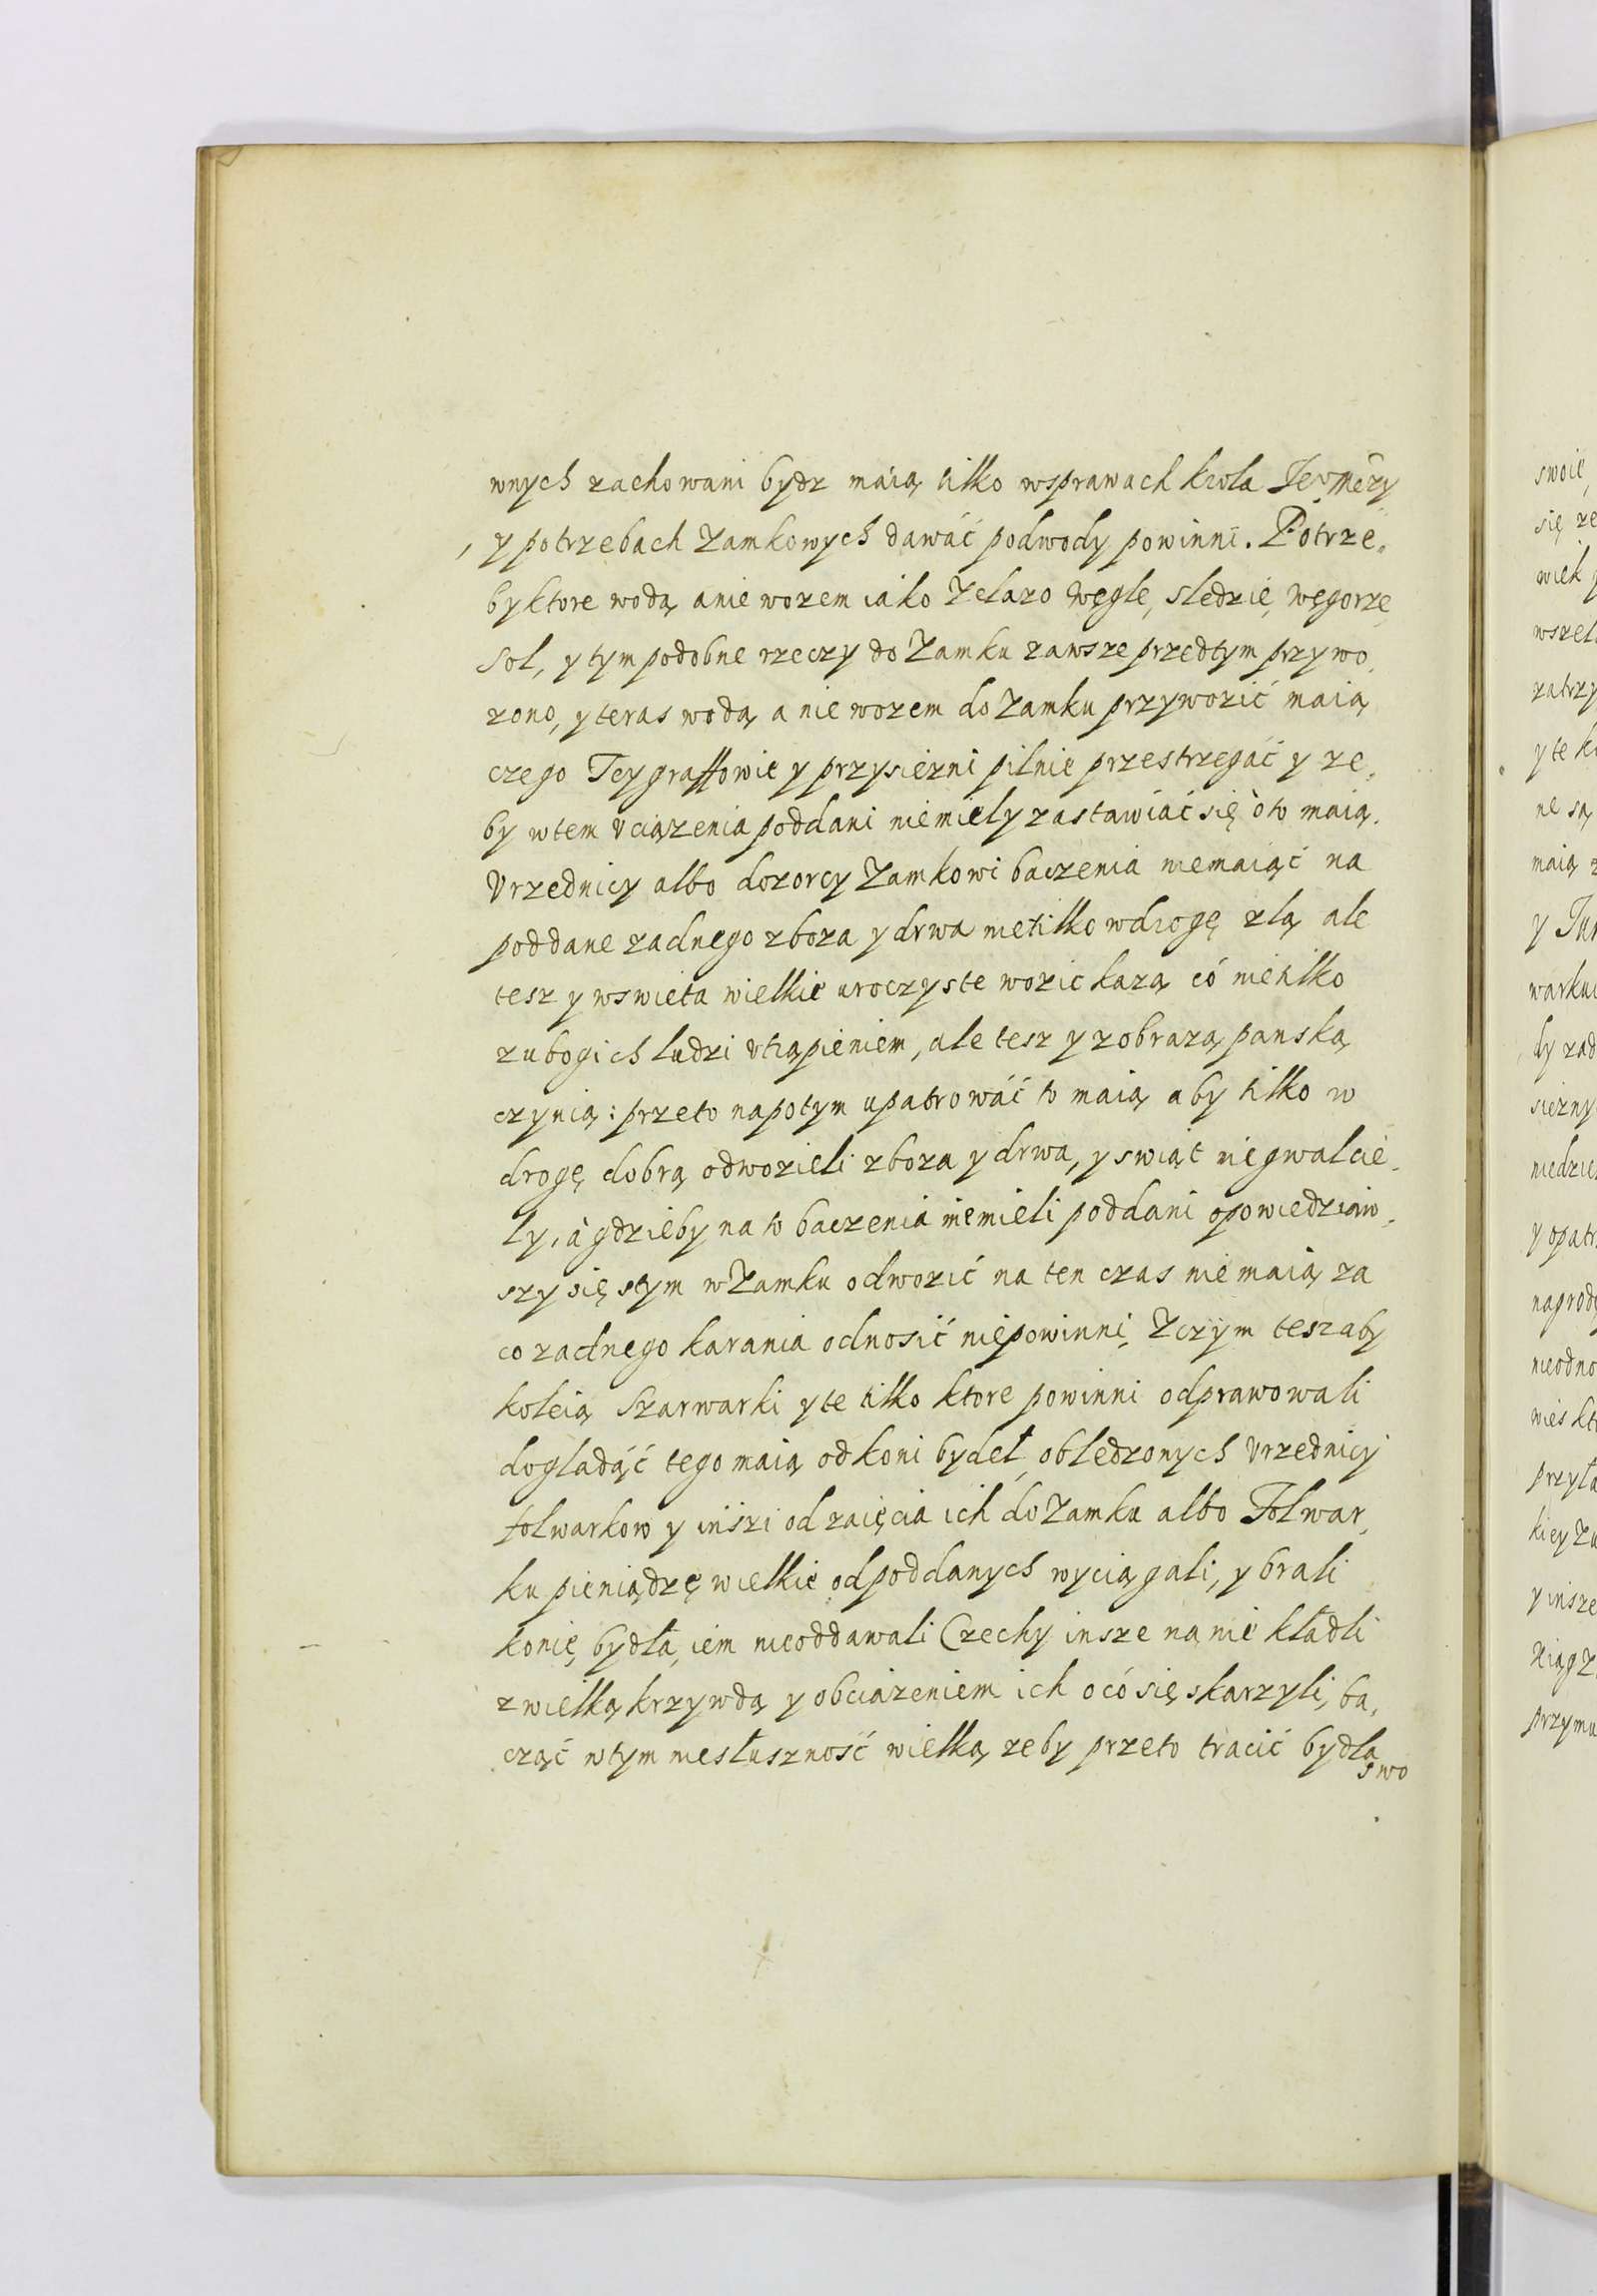 wnych zachowani bydz maią tilko wsprawach krola Je͠o Mczy
y potrzebach Zamkowych dawáć podwody powinni. Potrze,
by ktore wodą a nie wozem iako Zelazo Węgle, sledzie, węgorze,
Sol, y tym podobne rzeczy do Zamku zawsze przedtym przywo,
zono, y teras wodą a nie wozem do Zamku przywozić maią
czego Tcygraffowie y przysiezni pilnie przestrzegáć y ze,
by wtem vciązenia poddani niemiely zastawiać się ò to maią.
Vrzednicy albo dozorcy Zamkowi baczenia niemaiąć na
poddane zadnego zboza y drwa nietilko wdrogę złą ale
tesz y wswieta wielkie uroczyste wozic kazą có nietilko
z ubogich ludzi vtrapieniem, ale tesz y z obrazą panską
czynią: przeto napotym upatrowáć to maią aby tilko w
drogę dobrą odwozieli zboza y drwa, y swiąt niegwalcie,
ly, à gdzieby na to baczenia niemieli poddani opowiedziaw,
szy się stym w Zamku odwozić na ten czas nie maią za
co zadnego karania odnosić niepowinni, Zczym tesz aby
koleią Szarwarki y te tilko ktore powinni odprawowali
dogladąć tego maią od koni bydeł, obledzonych Vrzednicy
folwarkow y inszi od zaięcia ich do Zamku albo Folwar,
ku pieniądzę wielkie od poddanych wyciągali, y brali
konie, bydła, iem nieoddawali Czechy insze na nie kładli
z wielką krzywdą y obciazeniem ich o có się skarzyli, ba,
cząć wtym niesłuszność wielką zeby przeto tracić bydła
swo
swoie,
się ze
wiek
wszel
zatrzy
y te k
ne są
maią
y
warku
dy zad
siezny
niedzie
y opatr
nagrod
nieodno
wies kt
przyła
kiey
y insze
przymu